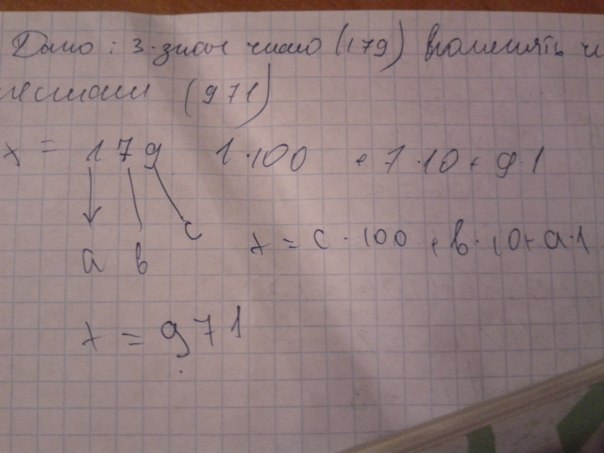 Дано: 3-знач число (179) поменять
местами (971)
x = 179 1·100 + 7·10 + 9·1
a в c
x = c·100 + в·10 + a·1
x = 971